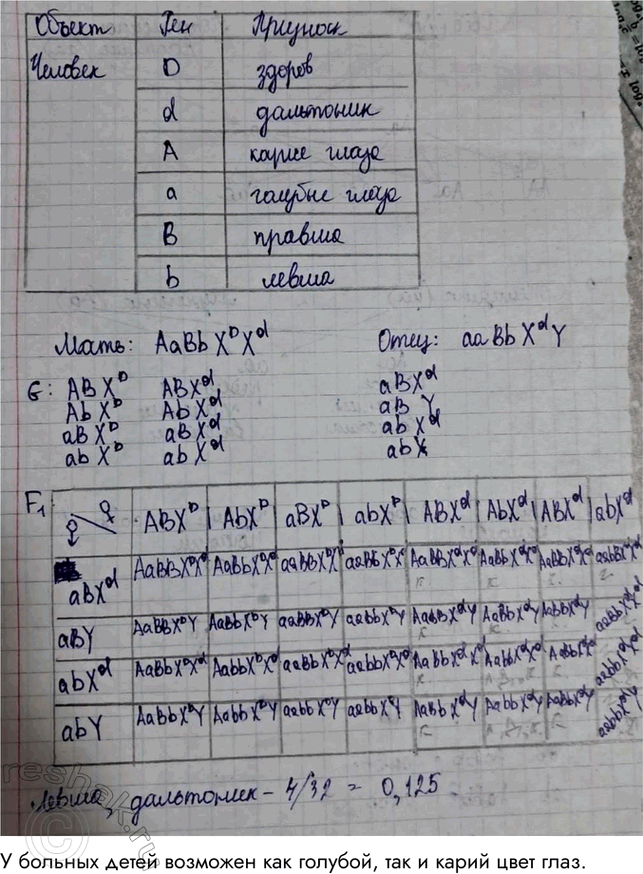 Объект Ген Признак
Человек D здоров
d дальтоник
A карие глаза
a голубые глаза
B правша
b левша
Мать: AaBb XᴰXᵈ Отец: aaBb XᵈY
G: ABXᴰ ABXᵈ aBXᵈ
AbXᴰ AbXᵈ aB Y
aBXᴰ aBXᵈ abXᵈ
abXᴰ abXᵈ
F₁ ♀ ABXᴰ AbXᴰ aBXᴰ abXᴰ ABXᵈ AbXᵈ ABXᵈ abXᵈ
aBXᵈ AaBBXᴰXᵈ AaBbXᴰXᵈ aaBBXᴰXᵈ aaBbXᴰXᵈ AaBBXᵈXᵈ AaBbXᵈXᵈ
aBY AaBBXᴰY AaBbXᴰY aaBBXᴰY aaBbXᴰY AaBBXᵈY AaBbXᵈY
abXᵈ AaBbXᴰXᵈ AabbXᴰXᵈ aaBbXᴰXᵈ aabbXᴰXᵈ AaBbXᵈXᵈ AabbXᵈXᵈ
abY AaBbXᴰY AabbXᴰY aabbXᴰY AaBbXᵈY AabbXᵈY
Левша, дальтоник – 4/32 = 0,125
reshak.ru
У больных детей возможен как голубой, так и карий цвет глаз.